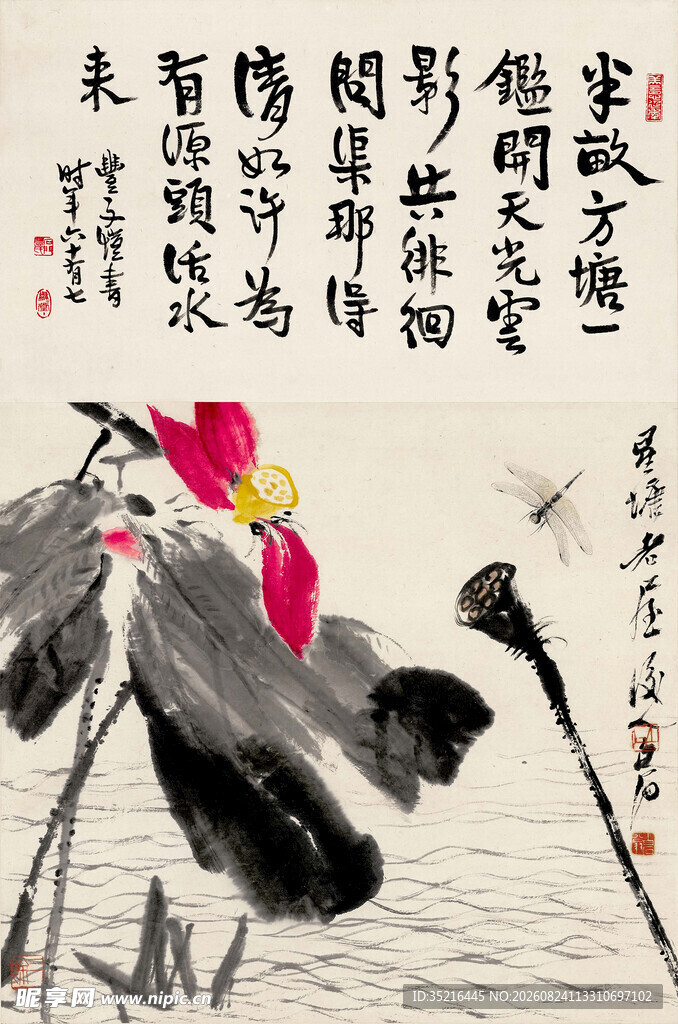 半畝方塘一
鑑開天光雲
影共徘徊
問渠那得
清如许為
有源頭活水
来
豐子愷書
时年六十有七
星塘老屋後人白石
昵享网 www.nipic.cn
ID:35216445 NO:20260824113310697102